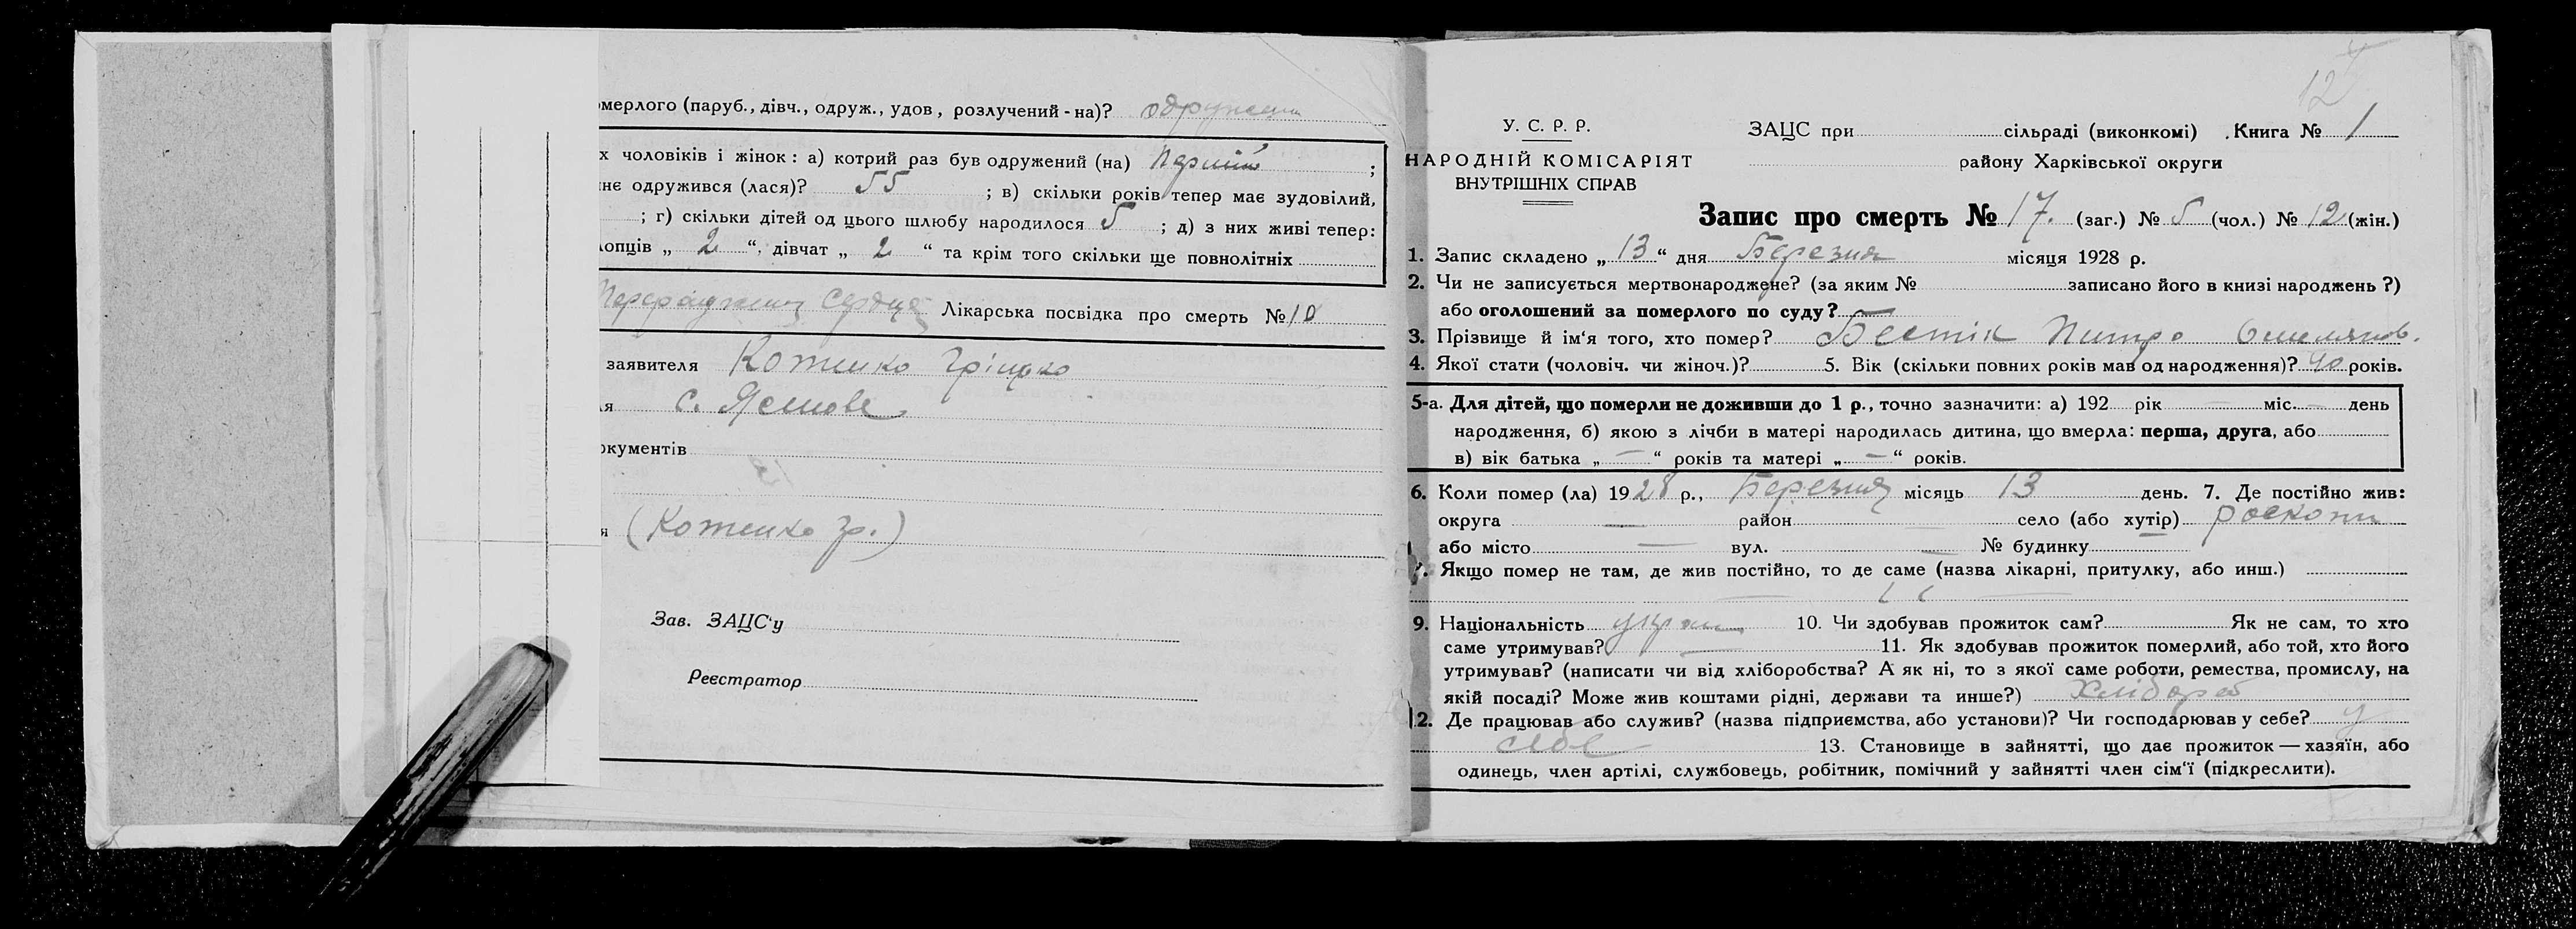 омерлого (паруб., дівч., одруж., удов, розлучений-на)? одружени
х чоловіків і жінок: а) котрий раз був одружений (на) Перший ;
не одружився (лася)? 55 ; в) скільки років тепер має зудовілий,
; г) скільки дітей од цього шлюбу народилося 5 ; д) з них живі тепер:
лопців „ 2 “, дівчат „ 2 “ та крім того скільки ще повнолітніх
Лікарська посвідка про смерть № 10
заявителя Котенко Гріцко
я с. Ясмове
окументів
я (Котенко Гр.)
Зав. ЗАЦС'у
Реєстратор
12
У. С. Р. Р.
НАРОДНІЙ КОМІСАРІЯТ
ВНУТРІШНІХ СПРАВ
ЗАЦС при сільраді (виконкомі) . Книга № 1
району Харківської округи
Запис про смерть № 17. (заг.) № 5 (чол.) № 12 (жін.)
1. Запис складено „ 13 “ дня Березня місяця 1928 р.
2. Чи не записується мертвонароджене? (за яким № записано його в книзі народжень?)
або оголошений за померлого по суду?
3. Прізвище й ім'я того, хто помер? Бестік Питро Омелянов.
4. Якої стати (чоловіч. чи жіноч.)? 5. Вік (скільки повних років мав од народження)? 40 років.
5-а. Для дітей, що померли не доживши до 1 р., точно зазначити: а) 192 рік — міс. — день
народження, б) якою з лічби в матері народилась дитина, що вмерла: перша, друга, або
в) вік батька „ — “ років та матері „ — “ років.
6. Коли помер (ла) 1928 р., Березня місяць 13 день. 7. Де постійно жив:
округа — район — село (або хутір) роскопи
або місто — вул. — № будинку
. Якщо помер не там, де жив постійно, то де саме (назва лікарні, притулку, або инш.)
9. Національність україн 10. Чи здобував прожиток сам? Як не сам, то хто
саме утримував? — 11. Як здобував прожиток померлий, або той, хто його
утримував? (написати чи від хліборобства? А як ні, то з якої саме роботи, ремества, промислу, на
якій посаді? Може жив коштами рідні, держави та инше?) Хлібороб
12. Де працював або служив? (назва підприємства, або установи)? Чи господарював у себе? у
себе 13. Становище в зайнятті, що дає прожиток — хазяїн, або
одинець, член артілі, службовець, робітник, помічний у зайнятті член сім'ї (підкреслити).